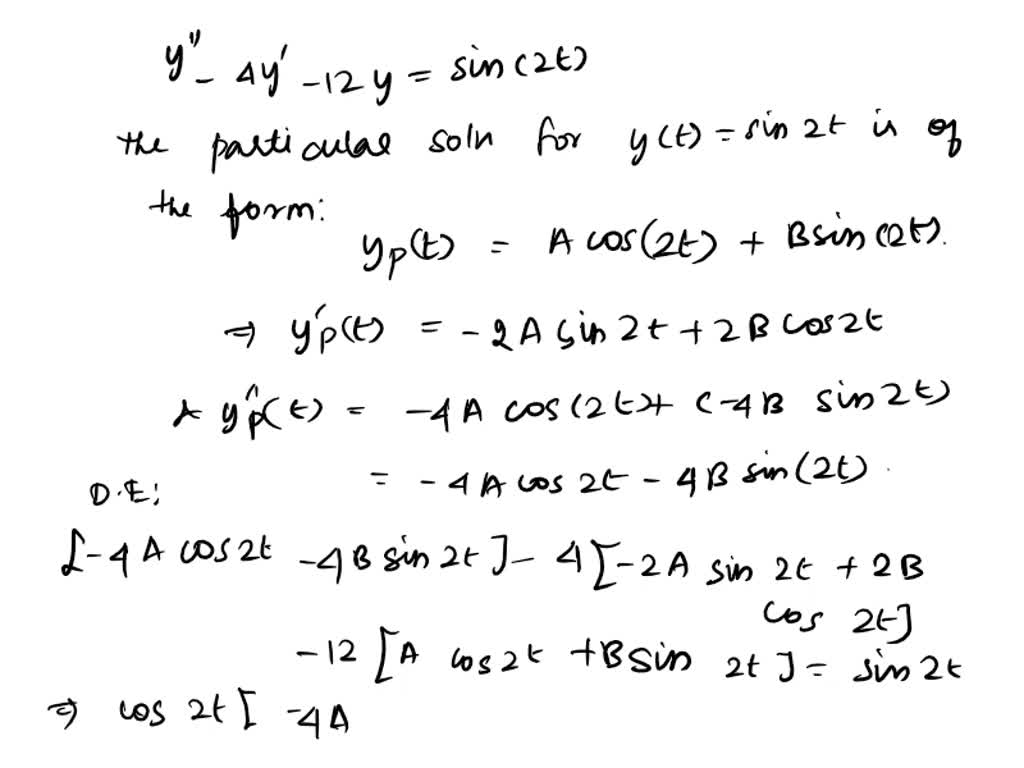 y'' - 4y' - 12y = sin(2t)
the particular soln for y(t) = sin 2t is of
the form:
yp(t) = A cos(2t) + Bsin(2t).
⇒ y'p(t) = -2A sin 2t + 2B cos2t
& y''p(t) = -4A cos(2t)+ (-4B sin 2t)
= -4A cos 2t - 4B sin(2t).
D.E:
[-4A cos2t -4B sin 2t] - 4[-2A sin 2t + 2B
cos 2t]
-12 [A cos2t +Bsin 2t] = sin 2t
⇒ cos 2t [ -4A